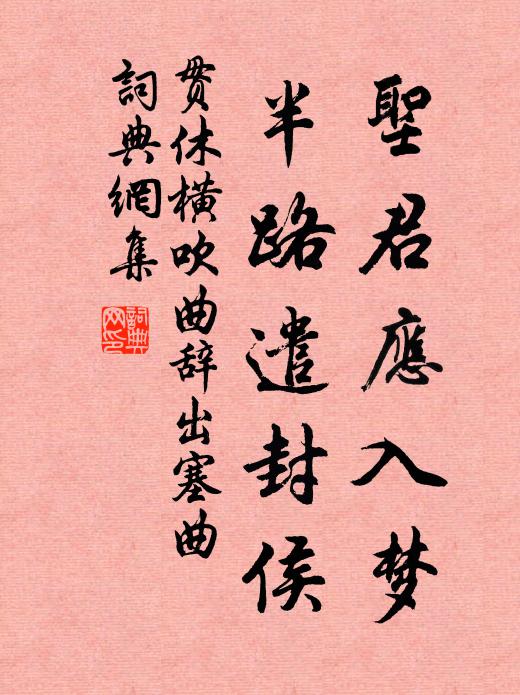 聖君應入梦
半路遣封侯
贯休橫吹曲辞出塞曲
詞典網集
詞典
网印